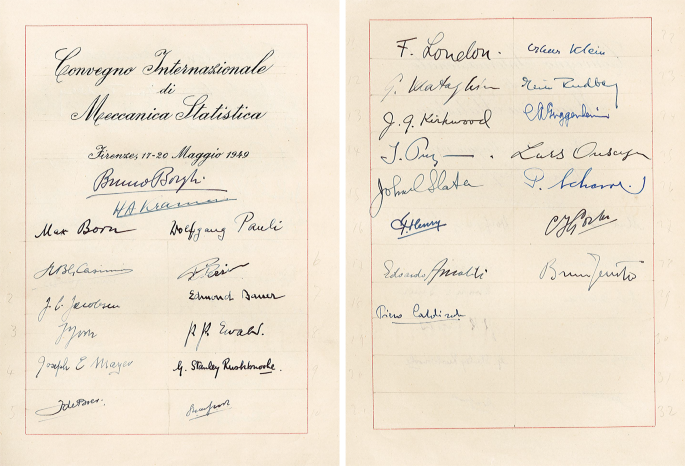 Convegno Internazionale
di
Meccanica Statistica
Firenze, 17-20 Maggio 1949
Bruno Borghi
HA Kramers
Max Born Wolfgang Pauli
HBG Casimir
J. C. Jacobsen Edmond Bauer
J Yvon P. P. Ewald.
Joseph E Mayer G. Stanley Rushbrooke.
J de Boer.
F. London. Oskar Klein
Erik Rudberg
J. G. Kirkwood EA Guggenheim
I. Prig Lars Onsager
John C Slater P. Scherrer
CJ Gorter
Edoardo Amaldi Bruno Ferretti
Piero Caldirola